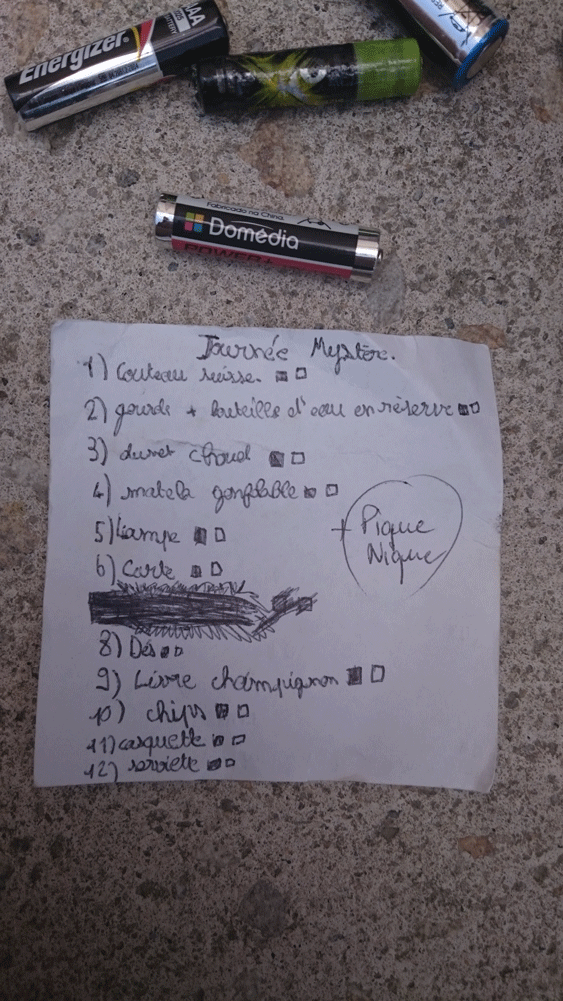 Energizer
AAA
Fabricado na China.
Domédia
POWER+
Journée Mystère.
1) Couteau suisse.
2) gourde + bouteille d'eau en réserve
3) duvet chaud
4) matela gonflable
5) Lampe
6) Carte
+ Pique
Nique
8) Dés
9) Livre champignon
10) chips
11) casquette
12) serviette